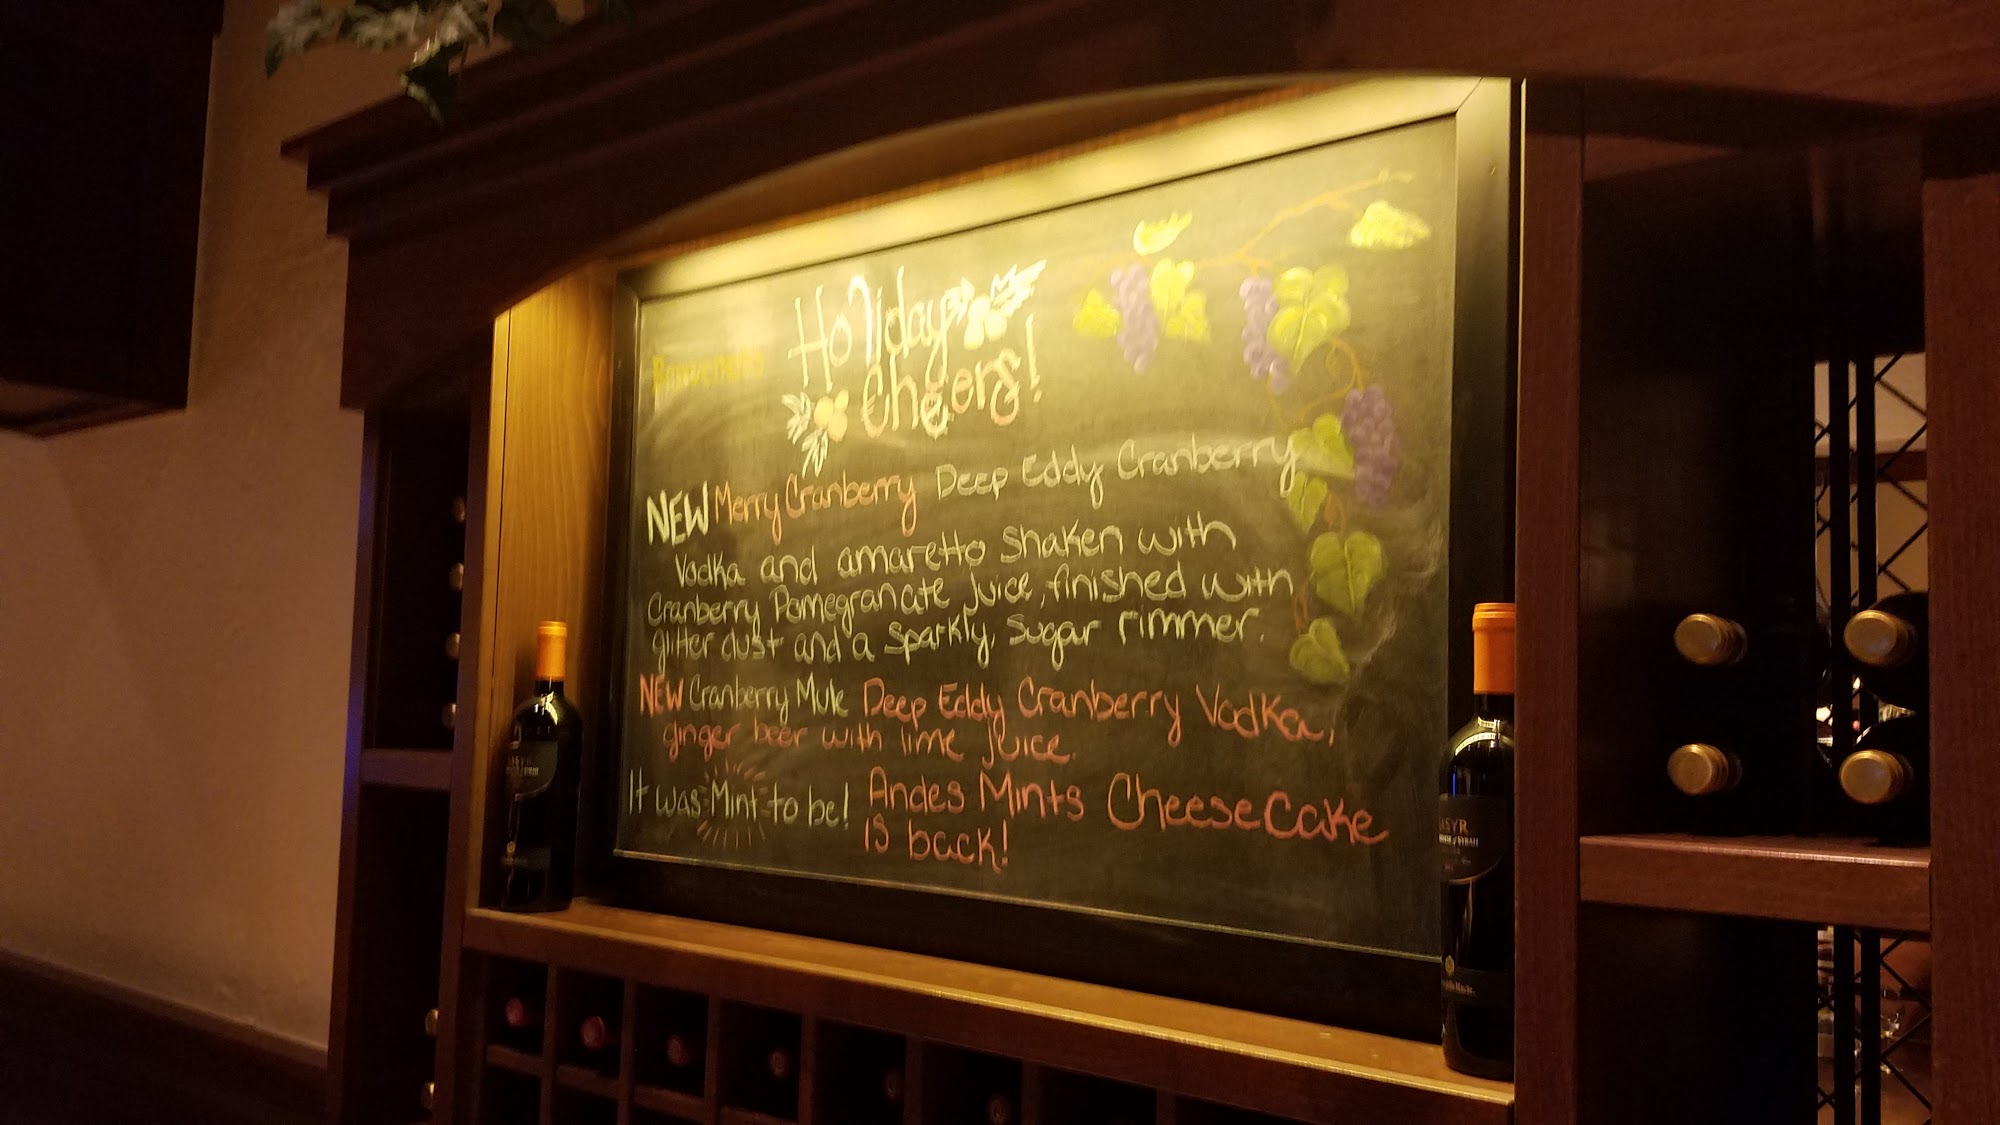 Benvenuto
Holiday
Cheers!
NEW Merry Cranberry Deep Eddy Cranberry
Vodka and amaretto shaken with
Cranberry Pomegranate juice, finished with
glitter dust and a sparkly, sugar rimmer.
NEW Cranberry Mule Deep Eddy Cranberry Vodka,
ginger beer with lime juice.
It was Mint to be! Andes Mints CheeseCake
is back!